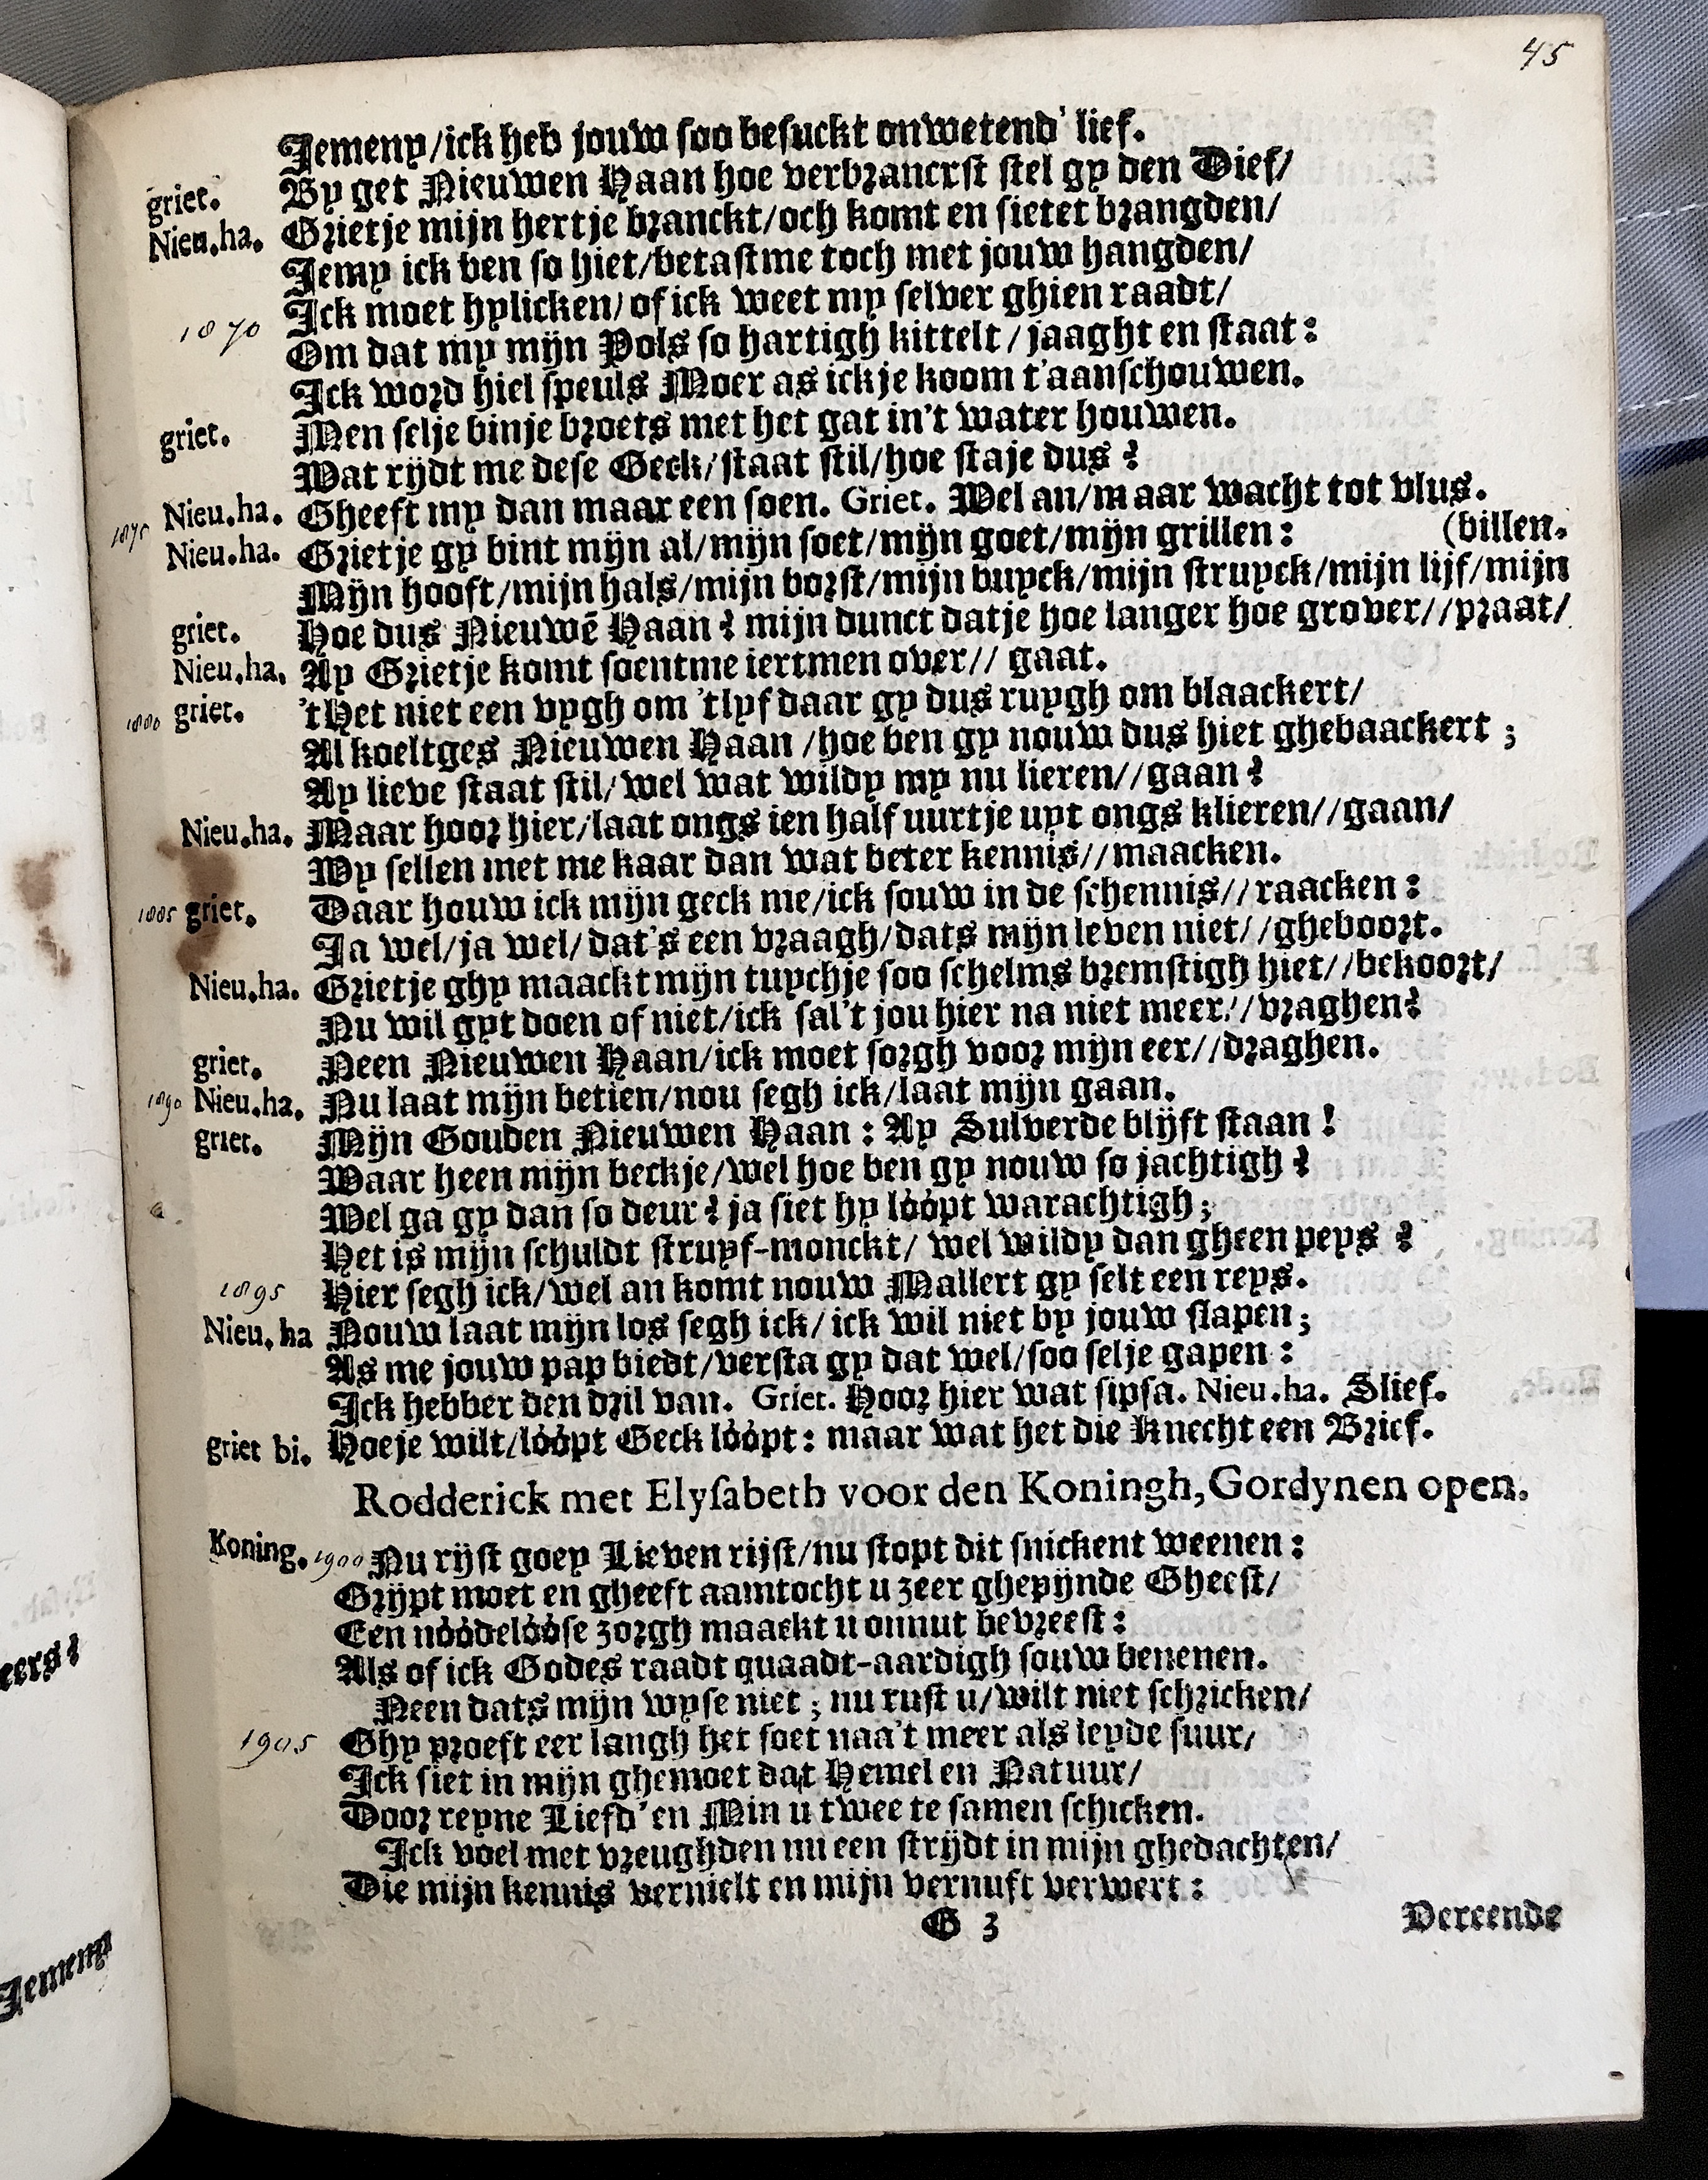 45
Jemeny/ick heb jouw soo besuckt onwetend' lief.
griet. By get Nieuwen Haan hoe verbrancrst stel gy den Dief/
Nieu.ha. Grietje mijn hertje branckt/och komt en sietet brangden/
Jemy ick ben so hiet/betastme toch met jouw hangden/
Ick moet hylicken/of ick weet my selver ghien raadt/
1870 Om dat my mijn Pols so hartigh kittelt/jaaght en staat:
Ick word hiel speuls Moer as ick je koom t'aanschouwen.
griet. Men selje binje broets met het gat in't water houwen.
Wat rijdt me dese Geck/staat stil/hoe staje dus?
Nieu.ha. Gheeft my dan maar een soen. Griet. Wel an/maar wacht tot vlus.
1875 Nieu.ha. Grietje gy bint mijn al/mijn soet/mijn goet/mijn grillen: (billen.
Mijn hooft/mijn hals/mijn borst/mijn buyck/mijn struyck/mijn lijf/mijn
griet. Hoe dus Nieuwē Haan? mijn dunct datje hoe langer hoe grover//praat/
Nieu.ha. Ay Grietje komt soentme iertmen over// gaat.
1880 griet. 't Het niet een vygh om 'tlyf daar gy dus ruygh om blaackert/
Al koeltges Nieuwen Haan/hoe ben gy nouw dus hiet ghebaackert;
Ay lieve staat stil/wel wat wildy my nu lieren//gaan?
Nieu.ha. Maar hoor hier/laat ongs ien half uurtje uyt ongs klieren//gaan/
Wy sellen met me kaar dan wat beter kennis//maacken.
1885 griet. Daar houw ick mijn geck me/ick souw in de schennis//raacken:
Ja wel/ja wel/dat's een vraagh/dats mijn leven niet//gheboort.
Nieu.ha. Grietje ghy maackt mijn tuychje soo schelms bremstigh hiet//bekoort/
Nu wil gyt doen of niet/ick sal't jou hier na niet meer//vraghen?
griet. Neen Nieuwen Haan/ick moet sorgh voor mijn eer//draghen.
1890 Nieu.ha. Nu laat mijn betien/nou segh ick/laat mijn gaan.
griet. Mijn Gouden Nieuwen Haan: Ay Sulverde blijft staan!
Waar heen mijn beckje/wel hoe ben gy nouw so jachtigh?
Wel ga gy dan so deur? ja siet hy lóópt warachtigh;
Het is mijn schuldt struyf-monckt/ wel wildy dan gheen peys?
1895 Hier segh ick/wel an komt nouw Mallert gy selt een reys.
Nieu.ha Nouw laat mijn los segh ick/ick wil niet by jouw slapen;
As me jouw pap biedt/versta gy dat wel/soo selje gapen:
Ick hebber den dril van. Griet. Hoor hier wat sipsa. Nieu.ha. Slief.
griet bi. Hoeje wilt/lóópt Geck lóópt: maar wat het die Knecht een Brief.
Rodderick met Elysabeth voor den Koningh, Gordynen open.
Koning. 1900 Nu rijst goey Lieven rijst/nu stopt dit snickent weenen:
Grijpt moet en gheeft aamtocht u zeer ghepijnde Gheest/
Een nóódelóóse zorgh maackt u onnut bevreest:
Als of ick Godes raadt quaadt-aardigh souw benenen.
Neen dats mijn wyse niet; nu rust u/wilt niet schricken/
1905 Ghy proeft eer langh het soet naa't meer als leyde suur/
Ick siet in mijn ghemoet dat Hemel en Natuur/
Door reyne Liefd' en Min u twee te samen schicken.
Ick voel met vreughden nu een strijdt in mijn ghedachten/
Die mijn kennis vernielt en mijn vernuft verwert:
G 3
Vereende
eers?
Jemeny